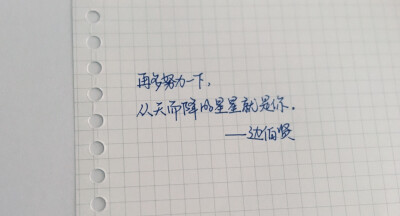 再多努力一下，
从天而降的星星就是你.
——边伯贤